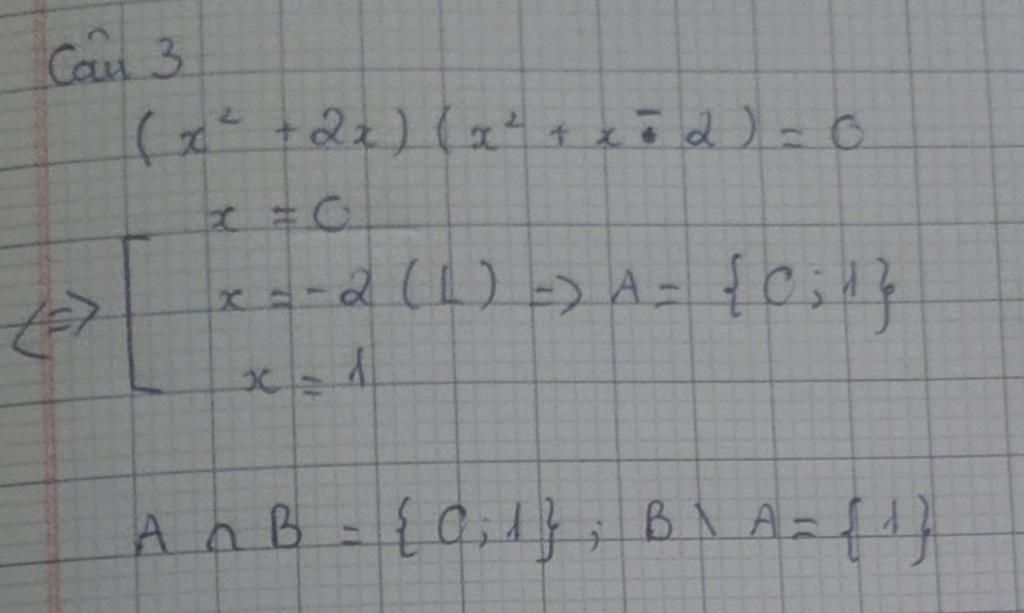 Câu 3
(x² + 2x)(x² + x - 2) = 0
x = 0
<=> [ x = -2 (L) => A = {0; 1}
x = 1
A ∩ B = {0; 1}; B \ A = {1}